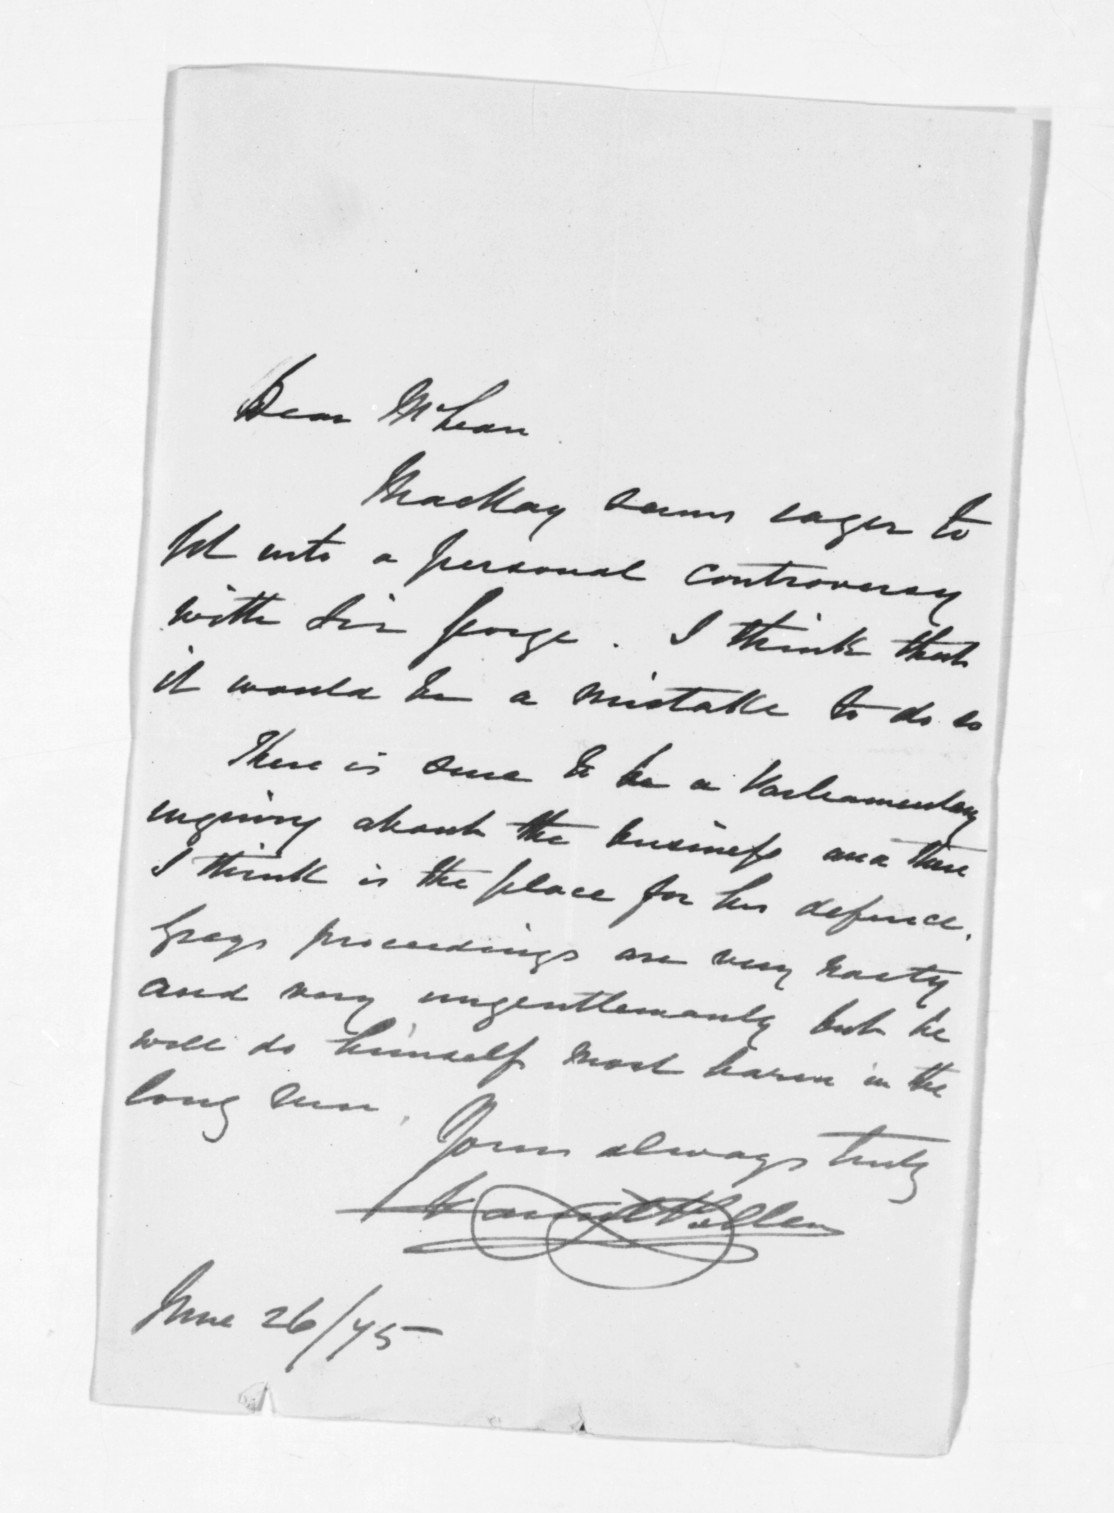 Dear McLean
MacKay seems eager to
get into a personal controversy
with Sir George. I think that
it would be a mistake to do so
There is sure to be a Parliamentary
inquiry about the business and there
I think is the place for his defence.
Greys proceedings are very nasty
and very ungentlemanly but he
will do himself most harm in the
long run.
Yours always truly
Daniel Pollen
June 26/75